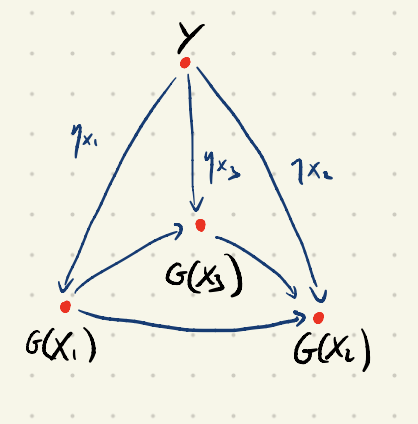 Y
ηx₁
ηx₃
ηx₂
G(X₃)
G(X₁)
G(X₂)